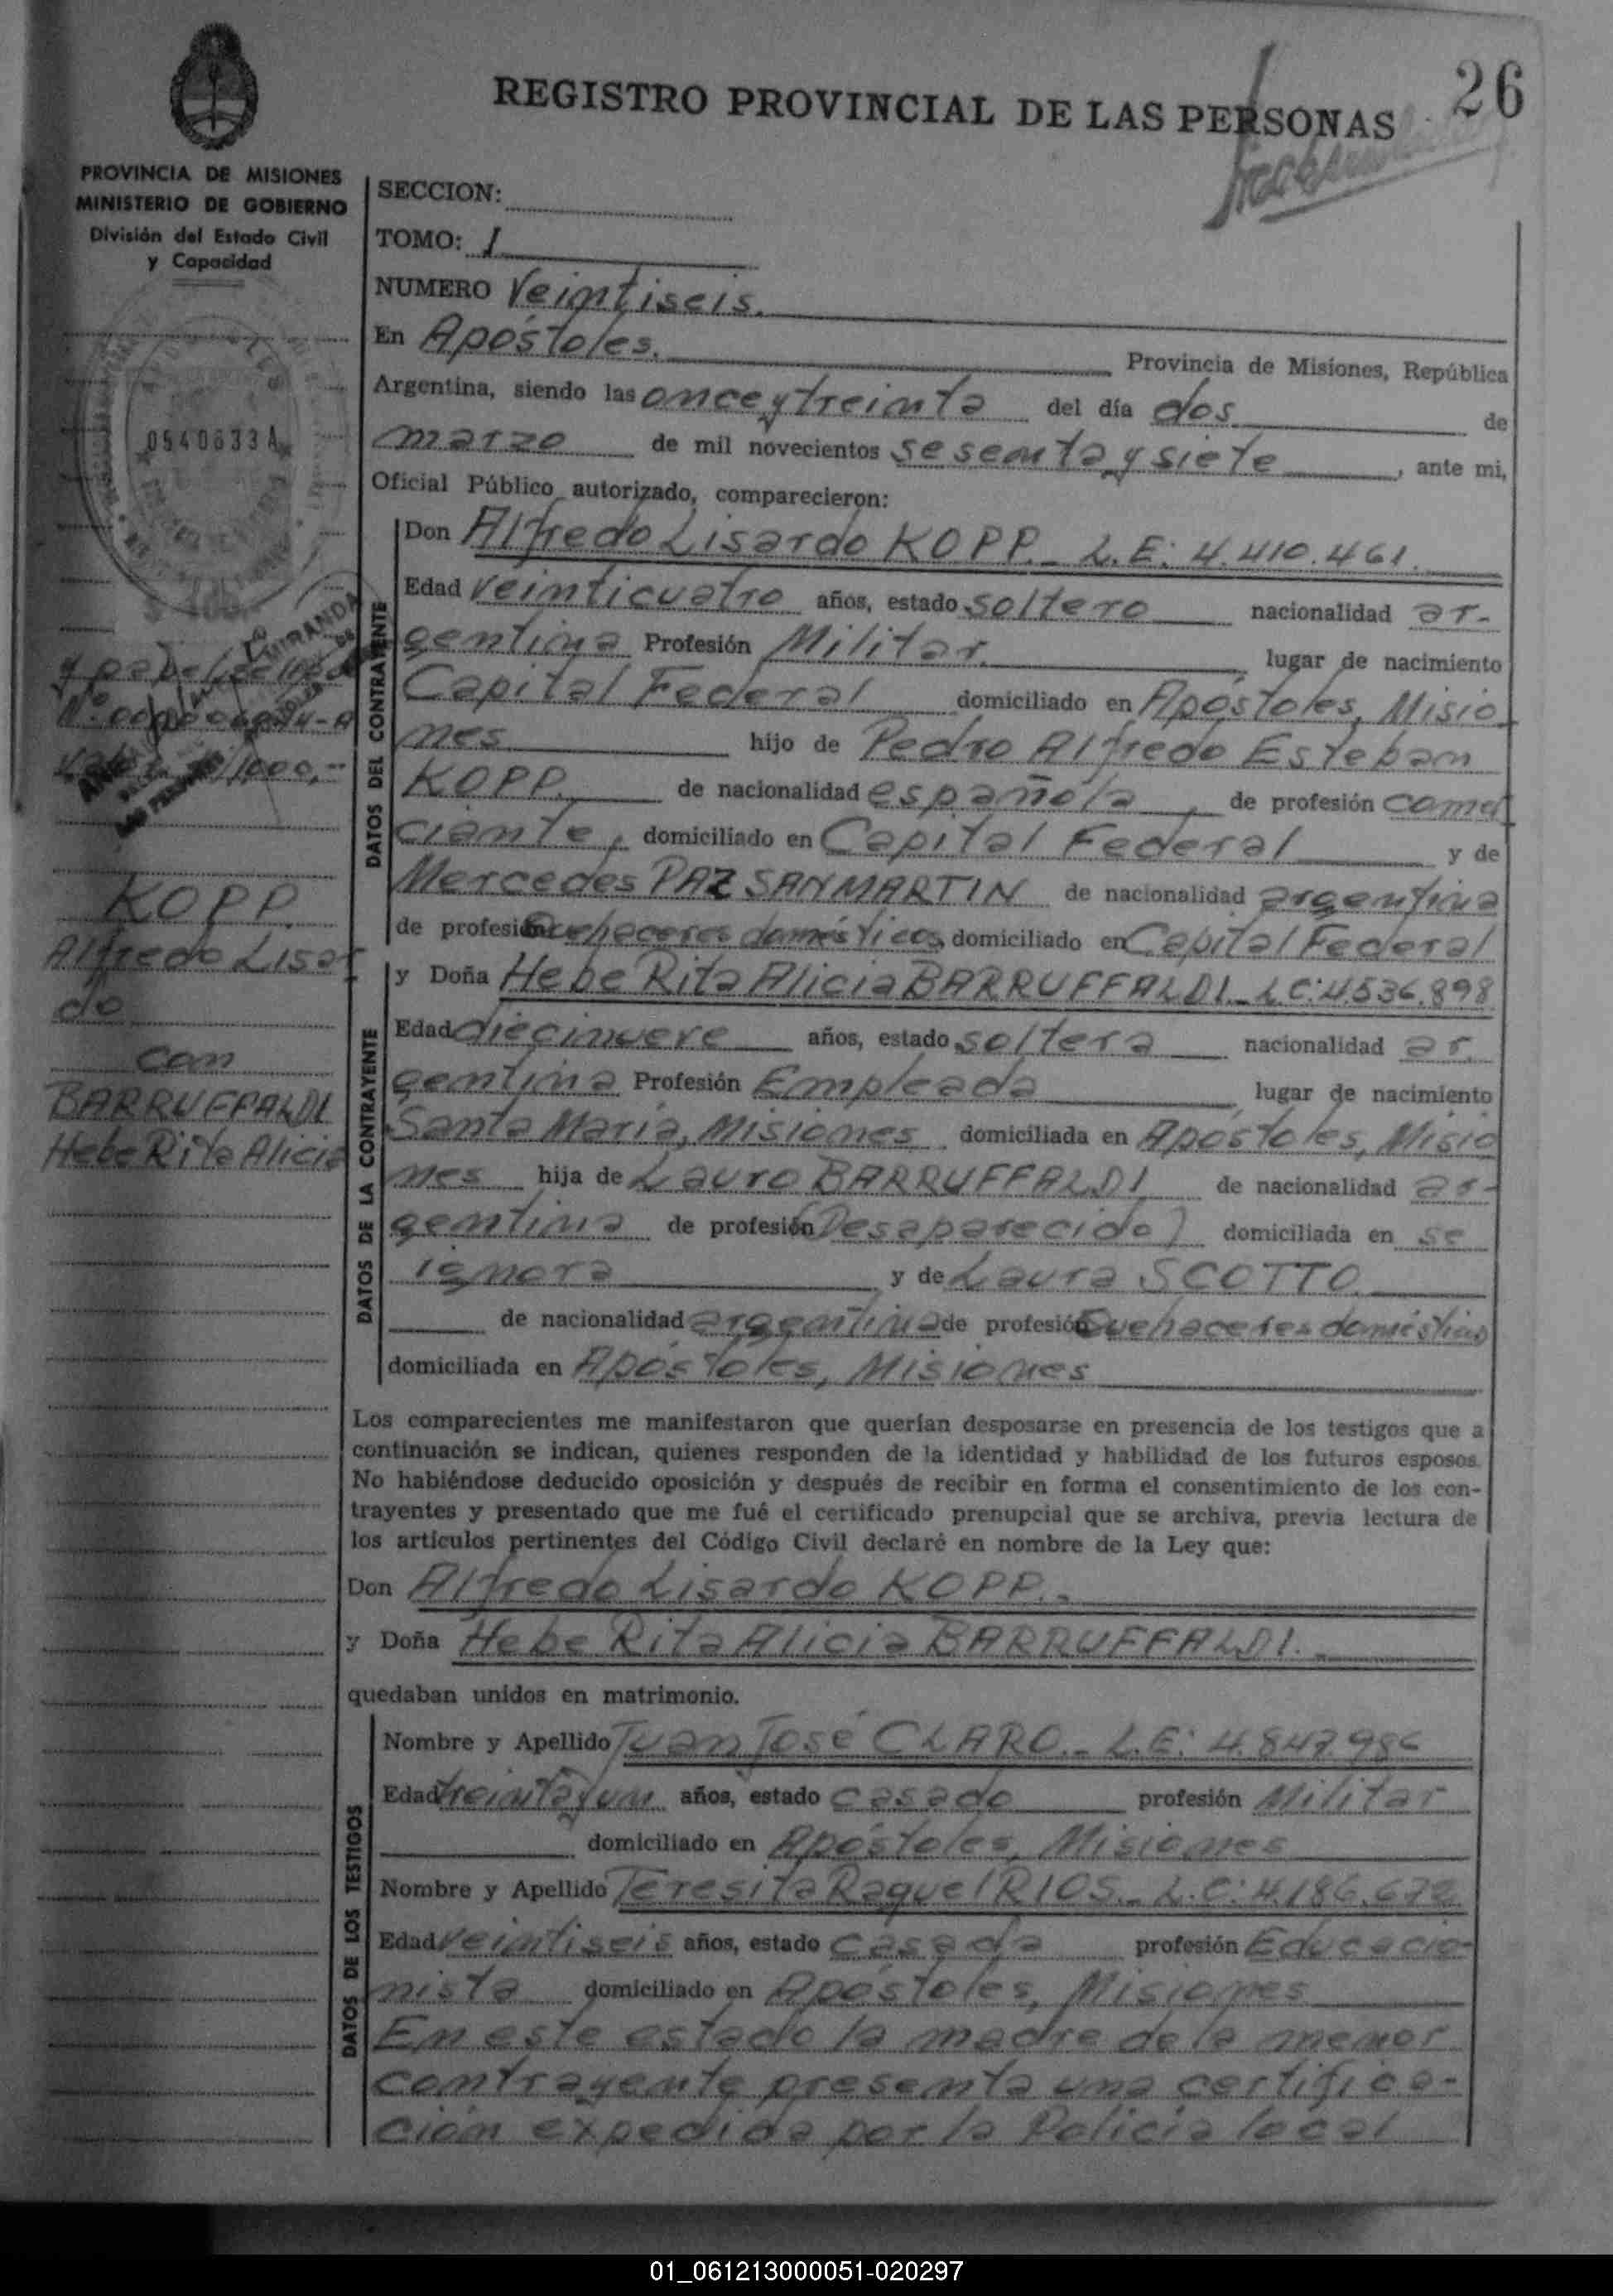 26
REGISTRO PROVINCIAL DE LAS PERSONAS
PROVINCIA DE MISIONES
MINISTERIO DE GOBIERNO
División del Estado Civil
y Capacidad
0540633A
MIRANDA
y papel sellado
KOPP
Alfredo Lisar
do
con
BARRUFFALDI
Hebe Rita Alicia
SECCION:
TOMO: I
NUMERO Veintiseis.
En Apóstoles. Provincia de Misiones, República
Argentina, siendo las once y treinta del día dos de
marzo de mil novecientos sesenta y siete, ante mi,
Oficial Público autorizado, comparecieron:
DATOS DEL CONTRAYENTE
Don Alfredo Lisardo KOPP.- L.E: 4.410.461.
Edad veinticuatro años, estado soltero nacionalidad ar-
gentina Profesión Militar. lugar de nacimiento
Capital Federal domiciliado en Apóstoles, Misio
nes hijo de Pedro Alfredo Esteban
KOPP. de nacionalidad española, de profesión comer
ciante, domiciliado en Capital Federal y de
Mercedes PAZ SANMARTIN de nacionalidad argentina
de profesión Quehaceres domésticos, domiciliado en Capital Federal
DATOS DE LA CONTRAYENTE
y Doña Hebe Rita Alicia BARRUFFALDI.- L.C: 4.536.898
Edad diecinueve años, estado soltera nacionalidad ar.
gentina Profesión Empleada lugar de nacimiento
Santa María, Misiones domiciliada en Apóstoles, Misio
nes hija de Lauro BARRUFFALDI de nacionalidad ar-
gentina de profesión (Desaparecido) domiciliada en se
ignora y de Laura SCOTTO.
de nacionalidad argentina de profesión Quehaceres domésticos
domiciliada en Apóstoles, Misiones
Los comparecientes me manifestaron que querían desposarse en presencia de los testigos que a
continuación se indican, quienes responden de la identidad y habilidad de los futuros esposos.
No habiéndose deducido oposición y después de recibir en forma el consentimiento de los con-
trayentes y presentado que me fué el certificado prenupcial que se archiva, previa lectura de
los artículos pertinentes del Código Civil declaré en nombre de la Ley que:
Don Alfredo Lisardo KOPP.-
y Doña Hebe Rita Alicia BARRUFFALDI.-
quedaban unidos en matrimonio.
DATOS DE LOS TESTIGOS
Nombre y Apellido Juan José CLARO.- L.E: 4.847.986
Edad treinta y un años, estado casado profesión Militar
domiciliado en Apóstoles, Misiones
Nombre y Apellido Teresita Raquel RIOS.- L.C: 4.186.672
Edad veintiseis años, estado casada profesión Educacio-
nista domiciliado en Apóstoles, Misiones
En este estado la madre de la menor
contrayente presenta una certifica-
ción expedida por la Policia local
01_061213000051-020297